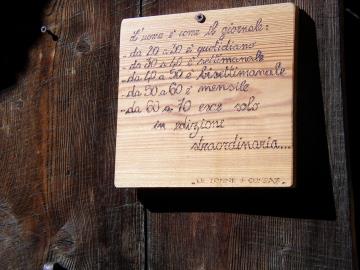 L'uomo è come il giornale:
- da 20 a 30 è quotidiano
- da 30 a 40 è settimanale
- da 40 a 50 è bisettimanale
- da 50 a 60 è mensile
- da 60 a 70 esce solo
in edizione
straordinaria...